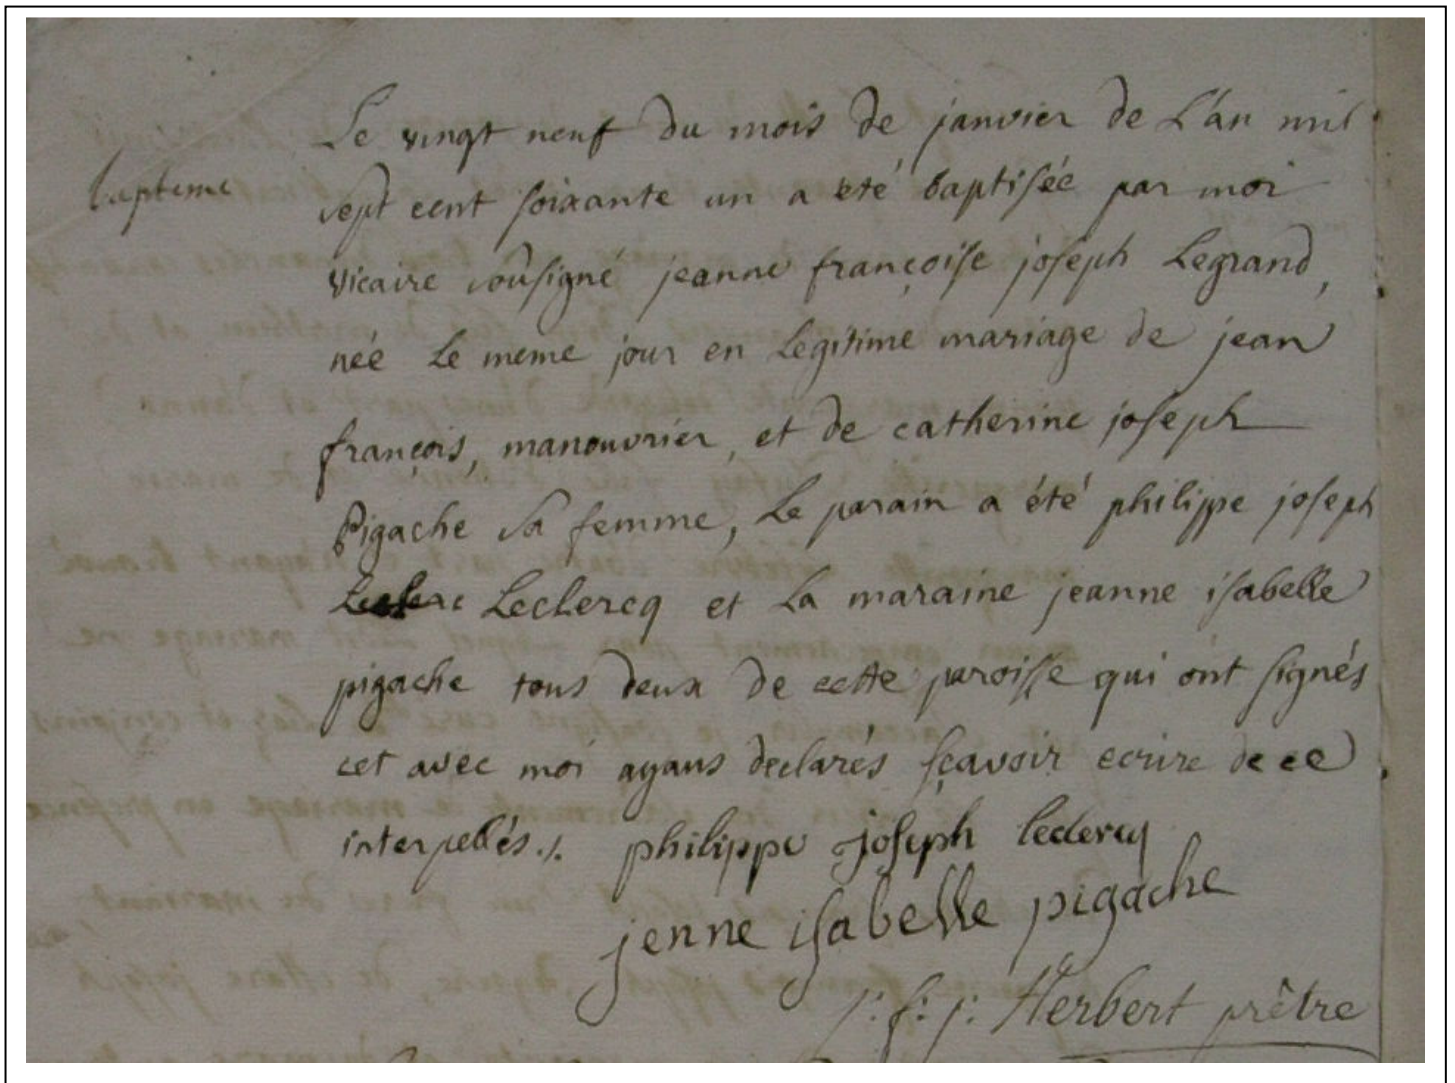 Le vingt neuf du mois de janvier de L'an mil
bapteme
sept cent soixante un a eté baptisée par moi
vicaire sousigné jeanne françoise joseph Legrand,
née Le meme jour en Legitime mariage de jean
françois, manouvrier, et de catherine joseph
Pigache sa femme, Le parain a été philippe joseph
Leclercq et La maraine jeanne isabelle
pigache tous deux de cette paroisse qui ont signés
cet avec moi ayans declarés sçavoir ecrire de ce
interpellés ./.    philippe joseph leclercq
jenne isabelle pigache
j: f: j: Herbert prêtre